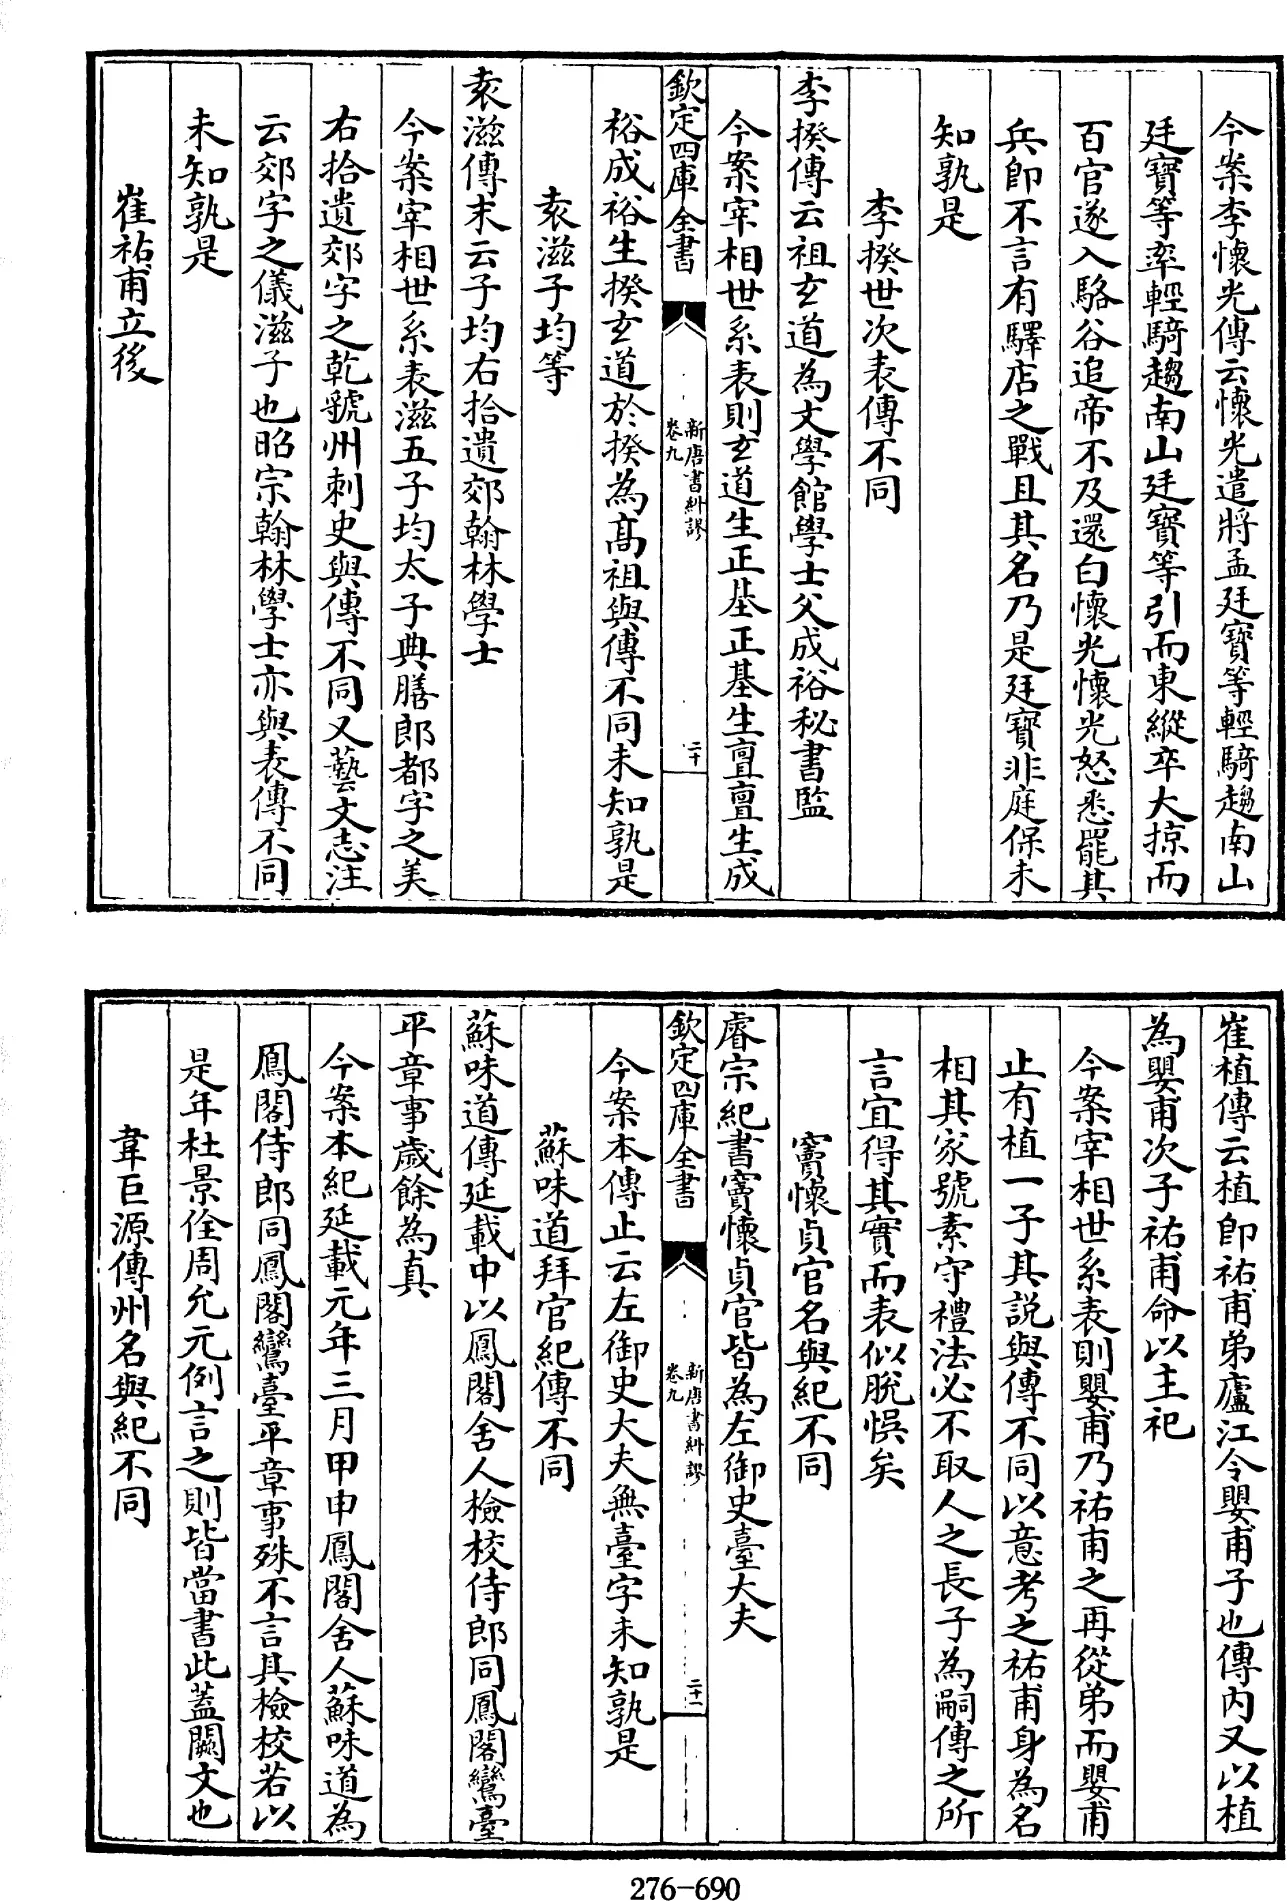 今案李懷光傳云懷光遣將孟廷寶等輕騎趨南山
廷寶等率輕騎趨南山廷寶等引而東縱卒大掠而
百官遂入駱谷追帝不及還白懷光懷光怒悉罷其
兵即不言有驛店之戰且其名乃是廷寶非庭保未
知孰是
李揆世次表傳不同
李揆傳云祖玄道為文學館學士父成裕秘書監
今案宰相世系表則玄道生正基正基生亶亶生成
欽定四庫全書
新唐書糾謬
卷九
二十
裕成裕生揆玄道於揆為高祖與傳不同未知孰是
袁滋子均等
袁滋傳末云子均右拾遺郊翰林學士
今案宰相世系表滋五子均太子典膳郎都字之美
右拾遺郊字之乾虢州刺史與傳不同又藝文志注
云郊字之儀滋子也昭宗翰林學士亦與表傳不同
未知孰是
崔祐甫立後
崔植傳云植即祐甫弟廬江令嬰甫子也傳内又以植
為嬰甫次子祐甫命以主祀
今案宰相世系表則嬰甫乃祐甫之再從弟而嬰甫
止有植一子其說與傳不同以意考之祐甫身為名
相其家號素守禮法必不取人之長子為嗣傳之所
言宜得其實而表似脫悞矣
竇懷貞官名與紀不同
睿宗紀書竇懷貞官皆為左御史臺大夫
欽定四庫全書
新唐書糾謬
卷九
二十一
今案本傳止云左御史大夫無臺字未知孰是
蘇味道拜官紀傳不同
蘇味道傳延載中以鳳閣舍人檢校侍郎同鳳閣鸞臺
平章事歲餘為真
今案本紀延載元年三月甲申鳳閣舍人蘇味道為
鳳閣侍郎同鳳閣鸞臺平章事殊不言具檢校若以
是年杜景佺周允元例言之則皆當書此蓋闕文也
韋巨源傳州名與紀不同
276-690